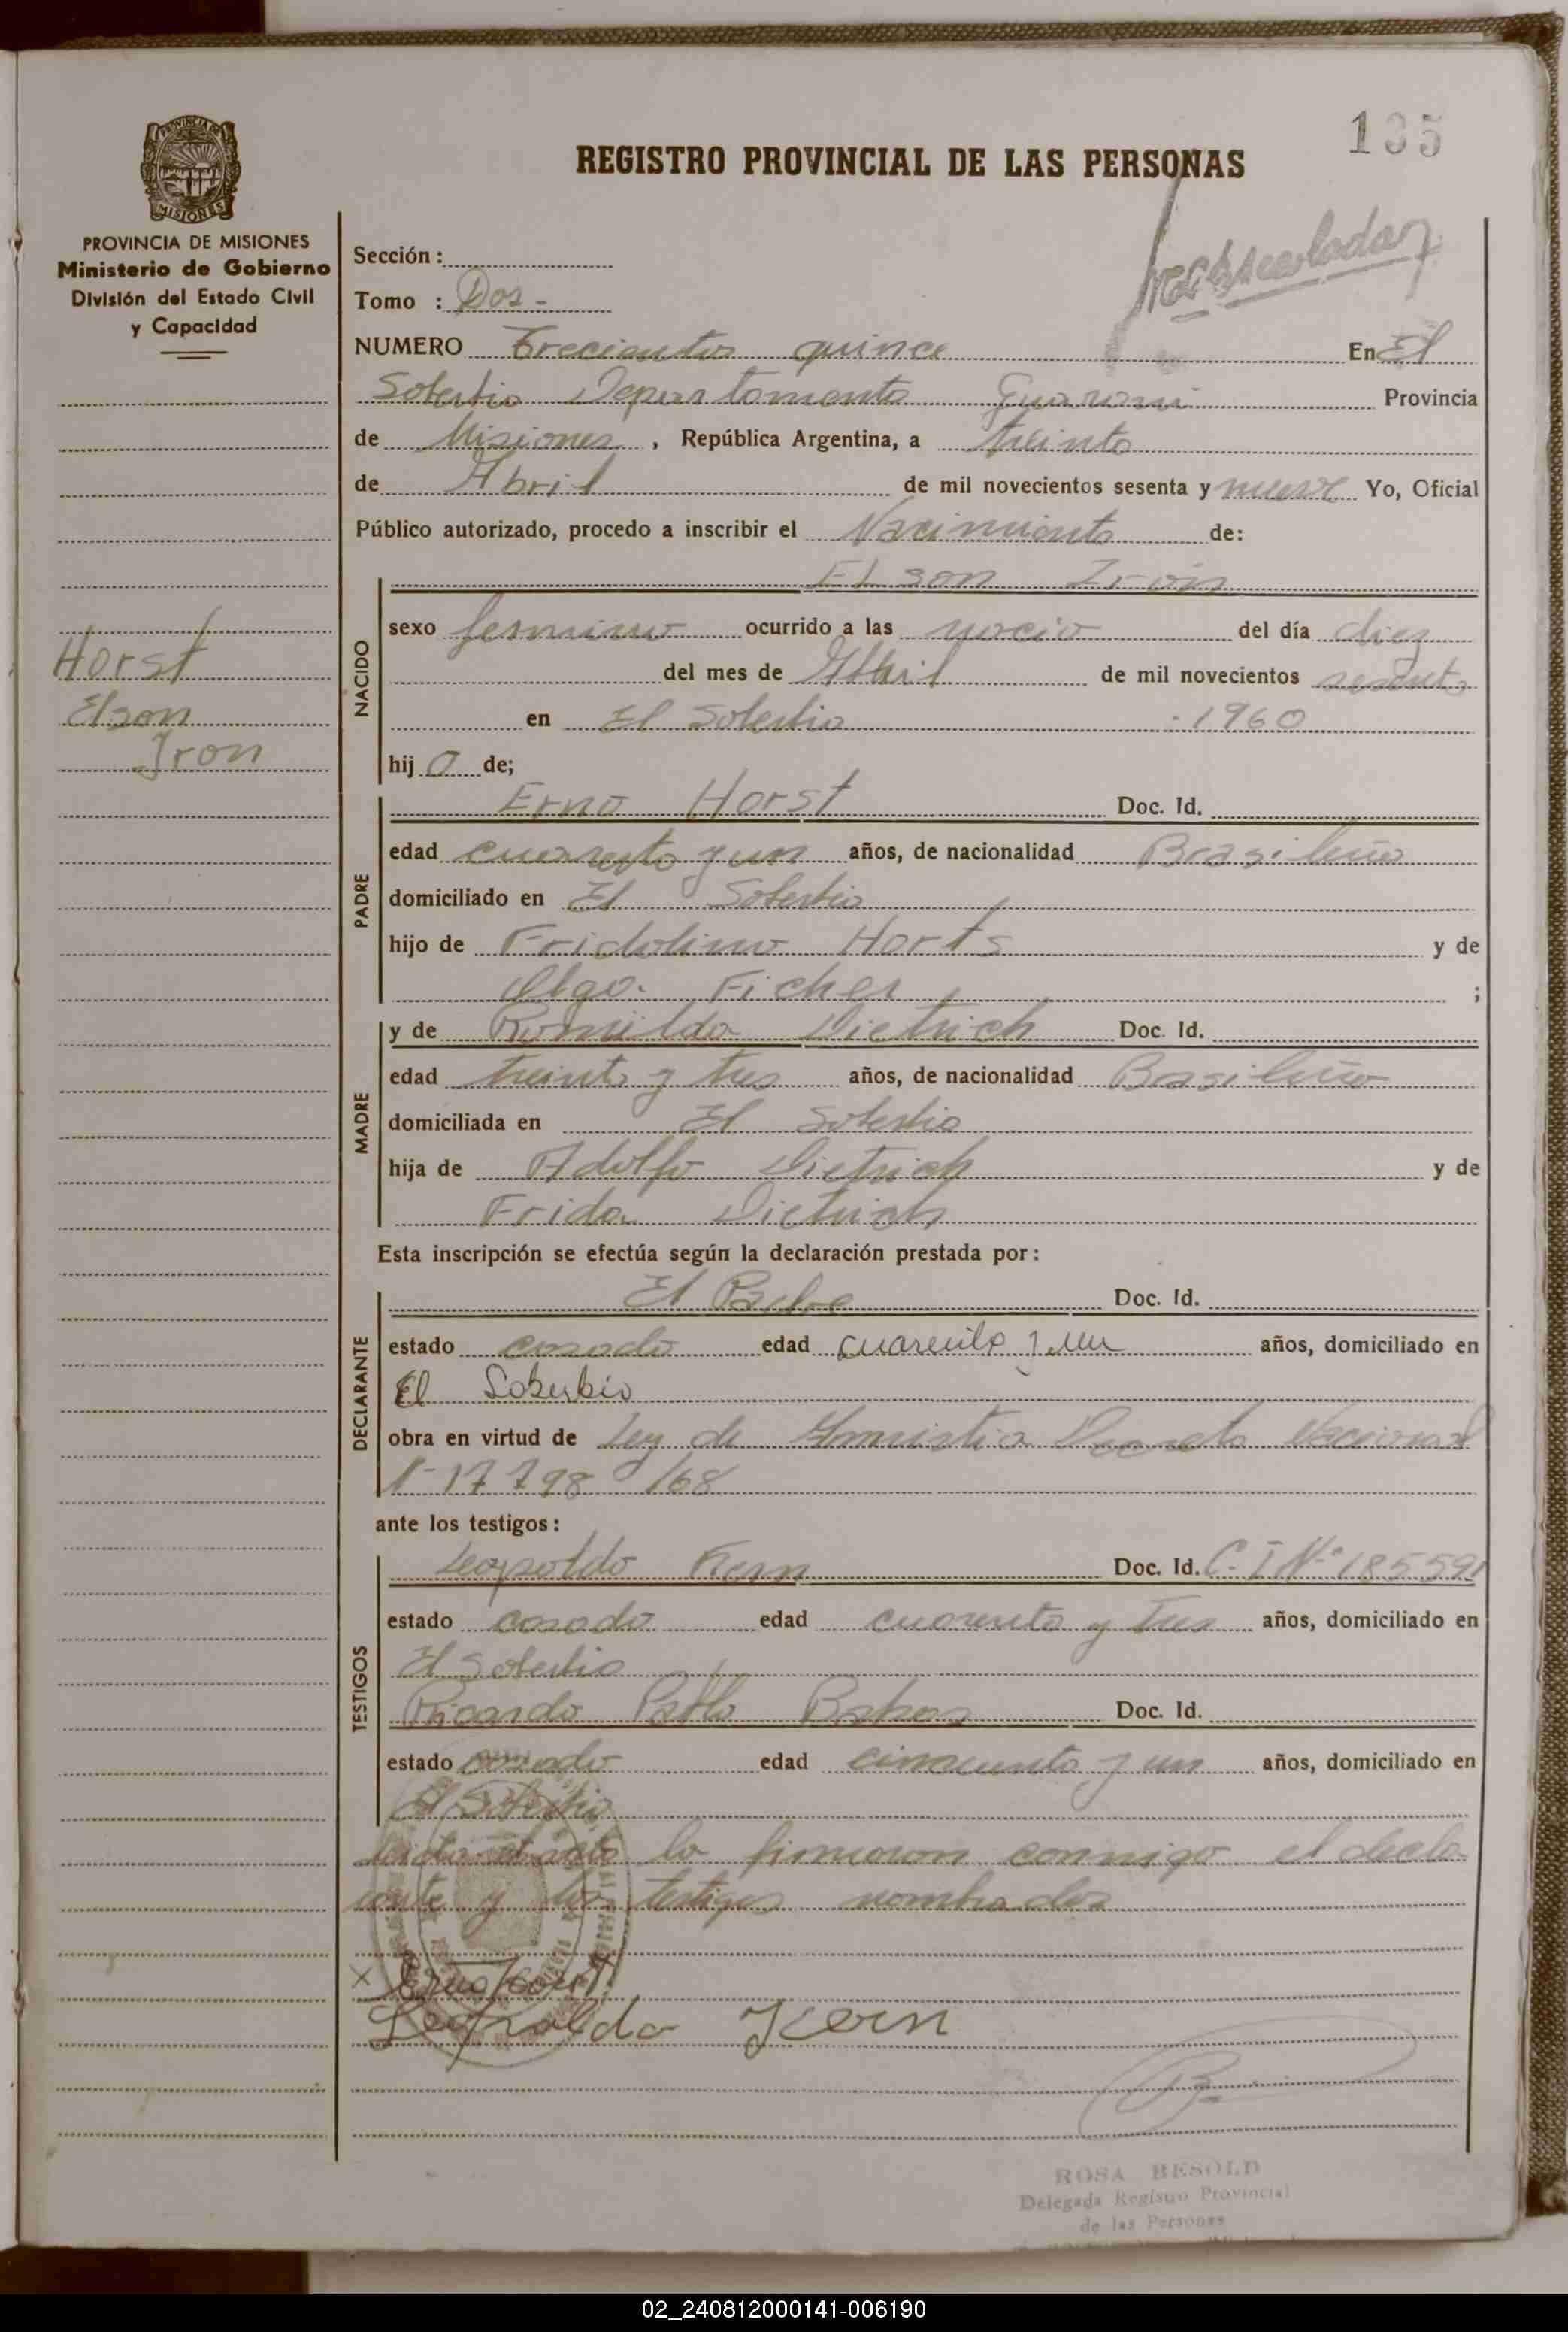 135
REGISTRO PROVINCIAL DE LAS PERSONAS
PROVINCIA DE MISIONES
MISIONES
PROVINCIA DE MISIONES
Ministerio de Gobierno
División del Estado Civil
y Capacidad
Horst
Elson
Iron
Sección :
Tomo : Dos -
NUMERO Trecientos quince En El
Soberbio Departamento Guarani Provincia
de Misiones , República Argentina, a treinta
de Abril de mil novecientos sesenta y nueve Yo, Oficial
Público autorizado, procedo a inscribir el Nacimiento de:
NACIDO
Elson Iron
sexo ocurrido a las del día diez
del mes de Abril de mil novecientos sesenta
en El Soberbio 1960
hij o de;
PADRE
Erno Horst Doc. Id.
edad cuarenta y un años, de nacionalidad Brasileño
domiciliado en El Soberbio
hijo de Fridolino Horts y de
Olga Ficher ;
MADRE
y de Romilda Dietrich Doc. Id.
edad treinta y tres años, de nacionalidad Brasileño
domiciliada en El Soberbio
hija de Adolfo Dietrich y de
Frida Dietrich
Esta inscripción se efectúa según la declaración prestada por :
DECLARANTE
El Padre Doc. Id.
estado casado edad cuarenta y un años, domiciliado en
El Soberbio
obra en virtud de Ley de Amnistia Decreto Nacional
N- 17798/68
ante los testigos :
TESTIGOS
Leopoldo Kern Doc. Id. C. I Nº 185591
estado casado edad cuarenta y tres años, domiciliado en
El Soberbio
Ricardo Pablo Doc. Id.
estado casado edad cincuenta y un años, domiciliado en
El Soberbio
la firmaron conmigo el decla
rante y los testigos nombrados
x Erno Horst
Leopoldo Kern
ROSA BESOLD
Delegada Registro Provincial
de las Personas
02_240812000141-006190